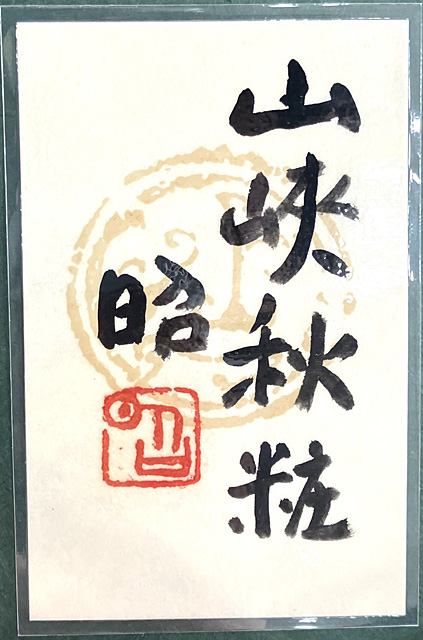 山峡秋粧
昭